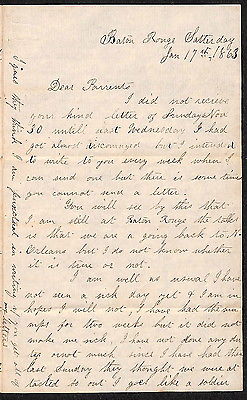 Baton Rouge Satterday
Jan 17th, 1863
Dear Parrents
I did not receve
you kind letter of Sundays Nov
30 untill last Wednesday I had
got almost discouraged but I intended
to write to you every week when I
can send one but there is some time
you cannot send a letter.
You will see by this that
I am still at Baton Rouge the talk
is that we are a going back to N-
Orleans but I do not know whether
it is true or not.
I am well as usual I have
not seen a sick day yet & I am in
hopes I will not, I have had the
mps for two weeks but it did not
make me sick, I have not done any du
ty or not much since I have had this
last Sunday they thought we were at
tacted so out I goes like a soldier
I guess they think I am punctual in writing if you get all of
my letters